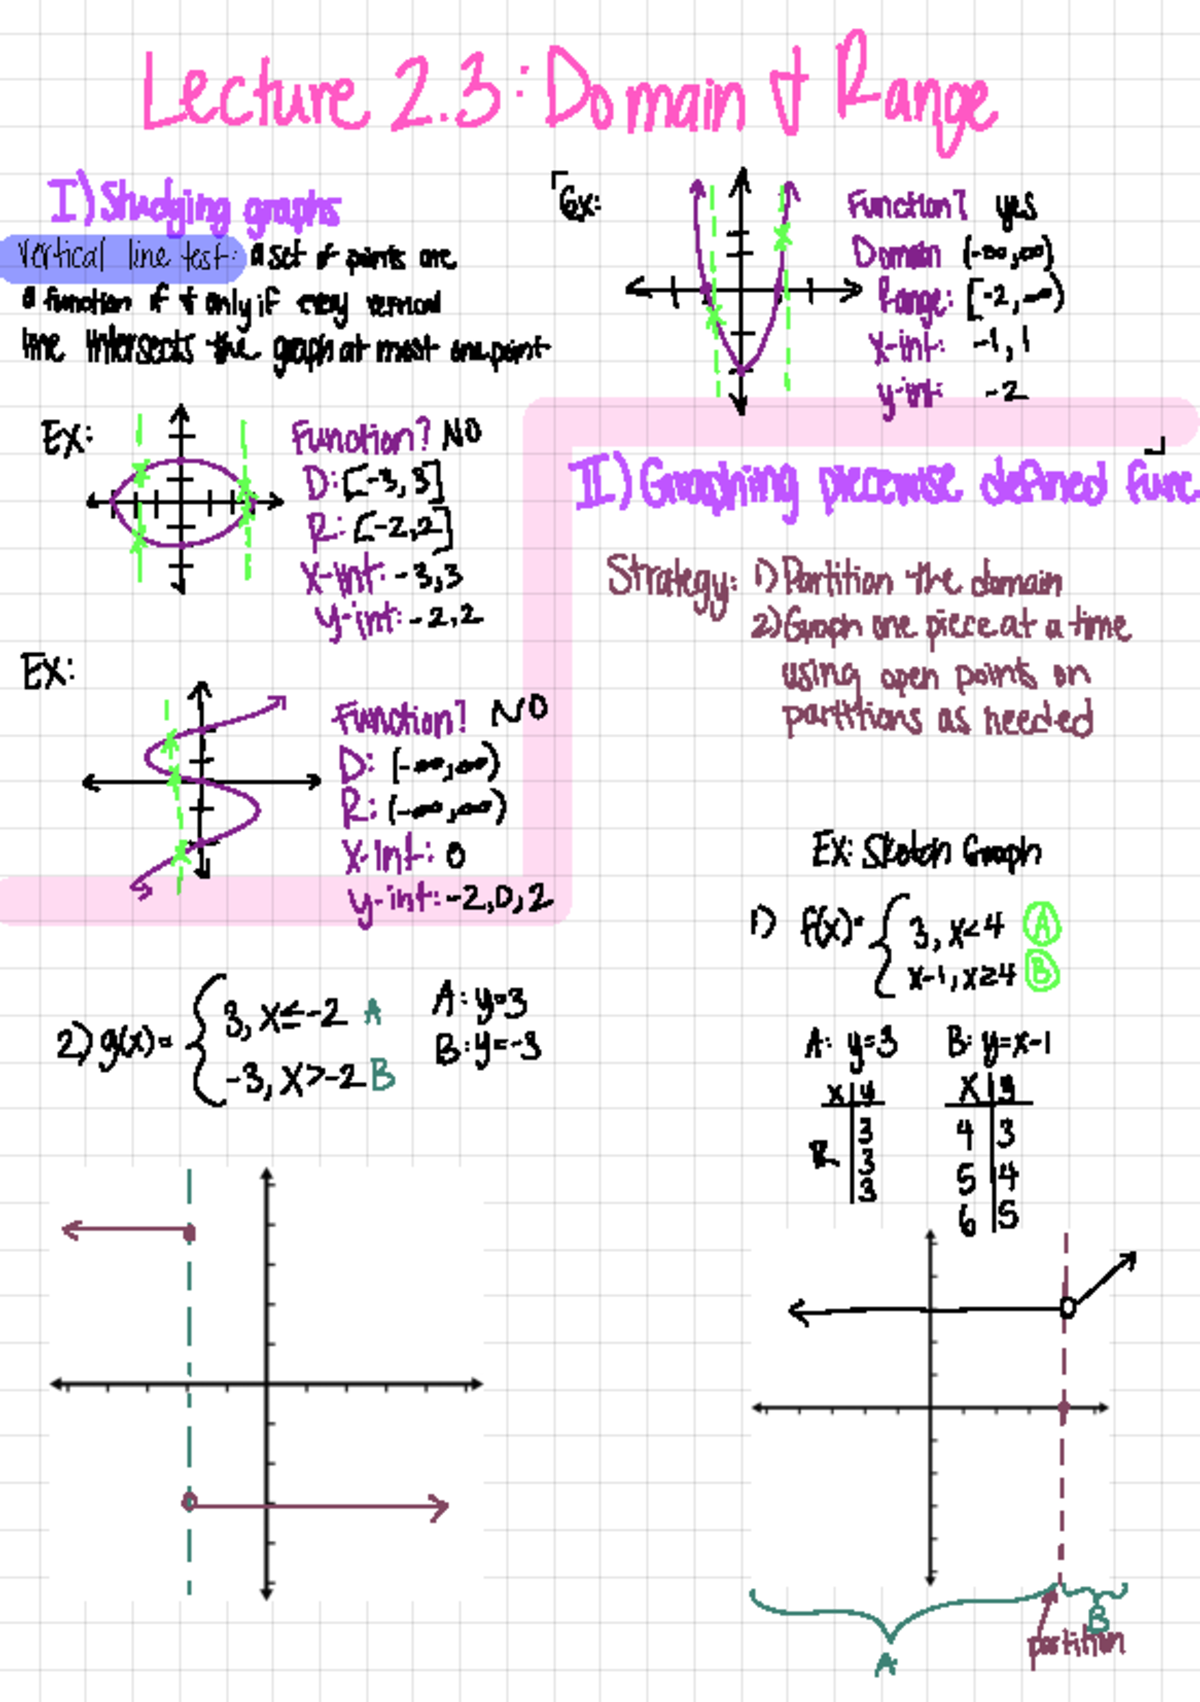 Lecture 2.3: Domain & Range
I) Studying graphs
vertical line test: a set of points are
a function if & only if every vertical
line intersects the graph at most one point
Ex:
Function? NO
D: [-3, 3]
R: [-2,2]
x-int: -3,3
y-int: -2,2
Ex:
Function? NO
D: (-∞,∞)
R: (-∞,∞)
x-int: 0
y-int: -2,0,2
Ex:
Function? yes
Domain (-∞,∞)
Range: [-2,∞)
x-int: -1,1
y-int: -2
II) Graphing piecewise defined func.
Strategy: 1) Partition the domain
2) Graph one piece at a time
using open points on
partitions as needed
Ex: Sketch Graph
1) f(x)= { 3, x<4 A
x-1, x≥4 B
A: y=3 B: y=x-1
x | y x | y
R | 3 4 | 3
3 5 | 4
3 6 | 5
A
B
partition
2) g(x)= { 3, x≤-2 A
-3, x>-2 B
A: y=3
B: y=-3